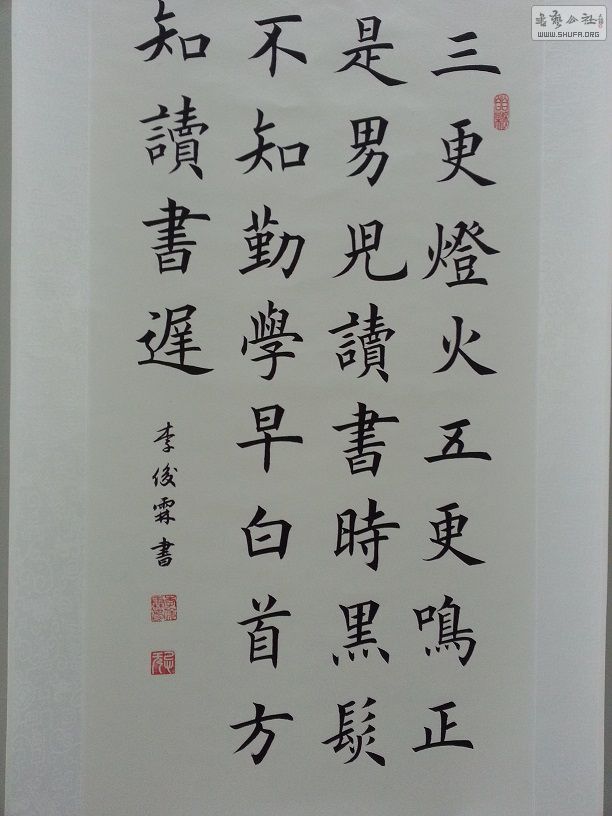 三更燈火五更鳴正
是男児讀書時黑髮
不知勤學早白首方
知讀書遲
李俊霖書
書藝公社
WWW.SHUFA.ORG